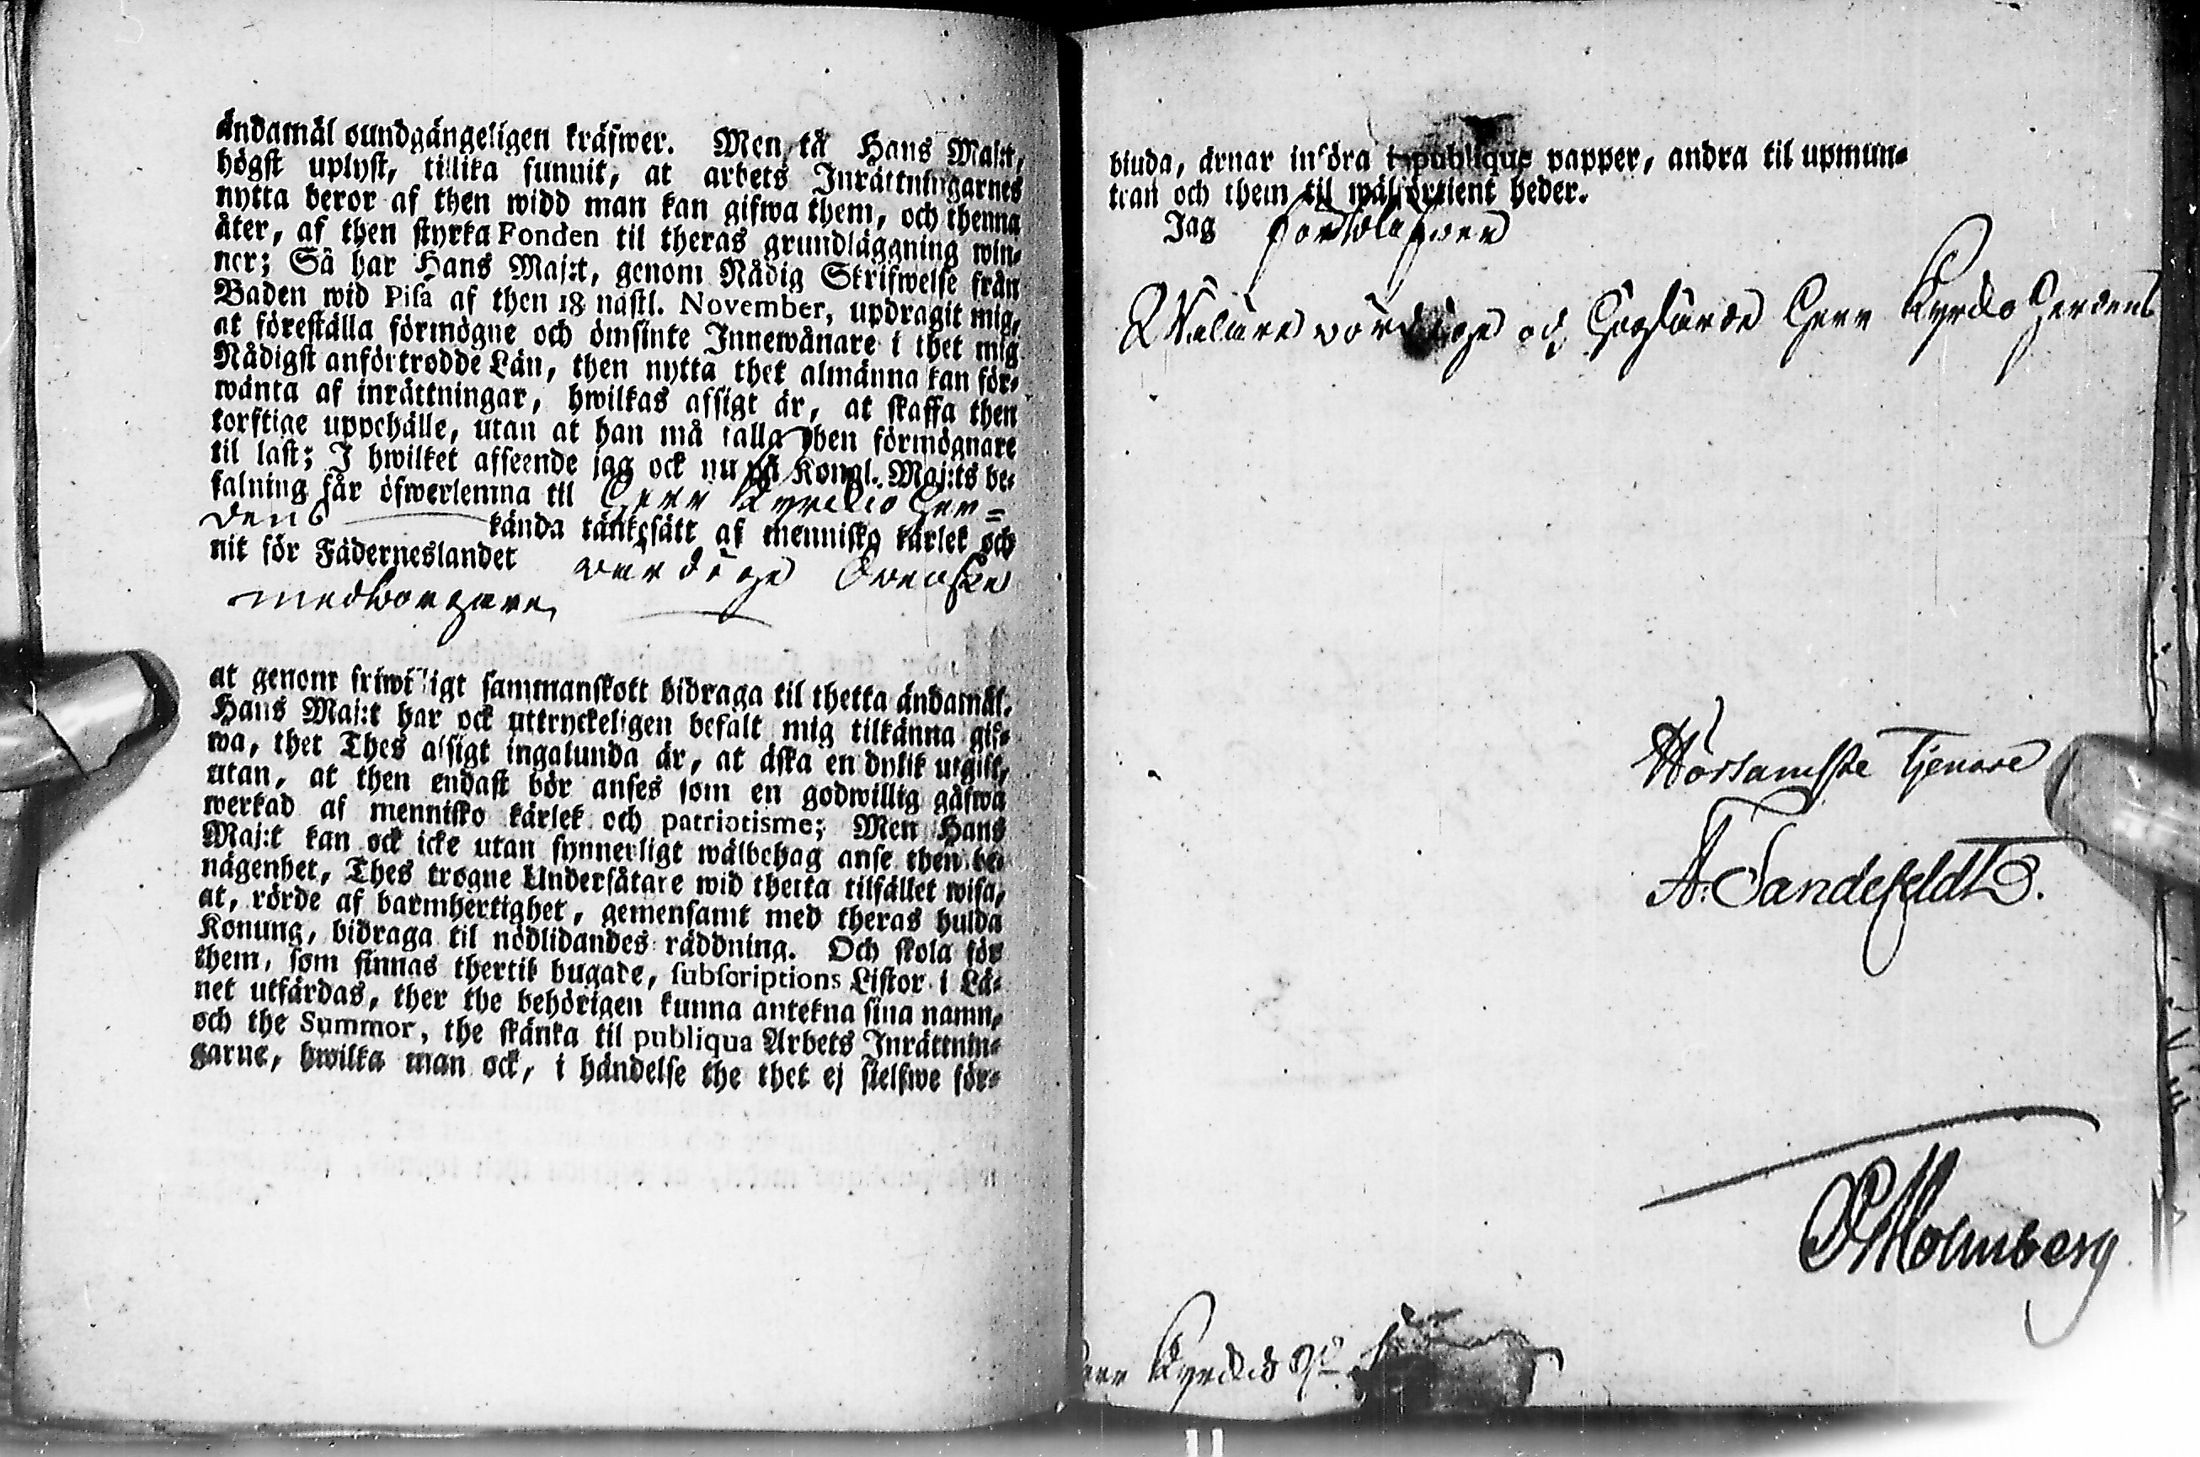 ändamål oundgängeligen kräfwer. Men tå Hans Maj:t,
högst uplyst, tillika funnit, at arbets Inrättningarnes
nytta beror af then widd man kan gifwa them, och thenna
åter, af then styrka Fonden til theras grundläggning win-
ner; Så har Hans Maj:t, genom Nådig Skrifwelse från
Baden wid Pisa af then 18 nästl. November, updragit mig,
at föreställa förmögne och ömsinte Innewånare i thet mig
Nådigst anförtrodde Län, then nytta thet almänna kan för-
wänta af inrättningar, hwilkas afsigt är, at skaffa then
torftige uppehälle, utan at han må falla then förmögnare
til last; I hwilket afseende jag ock nu på Kongl. Maj:ts be-
falning får öfwerlemna til Herr Kyrckio Her=
dens kända tänkesätt af mennisko kärlek och
nit för Fäderneslandet
medborgare,
at genom friwilligt sammanskott bidraga til thetta ändamål.
Hans Maj:t har ock uttryckeligen befalt mig tilkänna gif-
wa, thet Thes afsigt ingalunda är, at äska en dylik utgift,
utan, at then endast bör anses som en godwillig gåfwa
werkad af mennisko kärlek och patriotisme; Men Hans
Maj:t kan ock icke utan synnerligt wälbehag anse then be-
nägenhet, Thes trogne Undersåtare wid thetta tilfället wisa,
at, rörde af barmhertighet, gemensamt med theras hulda
Konung, bidraga til nödlidandes räddning. Och skola för
them, som finnas thertil bugade, subscriptions Listor i Lä-
net utfärdas, ther the behörigen kunna antekna sina namn,
och the Summor, the skänka til publiqua Arbets Inrättnin-
garne, hwilka man ock, i händelse the thet ej sielfwe för-
biuda, ärnar införa i publique papper, andra til upmun-
tran och them til wälförtient heder.
Jag
Herr Kyrcko Herdens
Hörsamste Tjenare
A. Sandefeldt
Holmberg